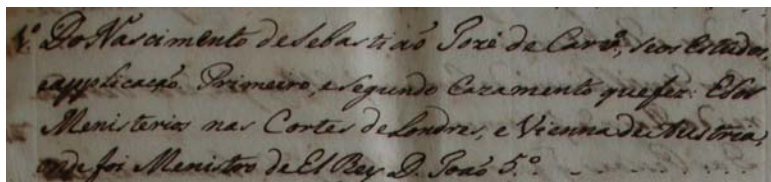 1º. Do Nascimento de Sebastião Jozé de Carvº, seos Estudos,
e applicação. Primeiro, e segundo Cazamento que fez: E Seos
Menisterios nas Cortes de Londres, e Vienna de Austria,
onde foi Menistro de El Rey D. João 5.º